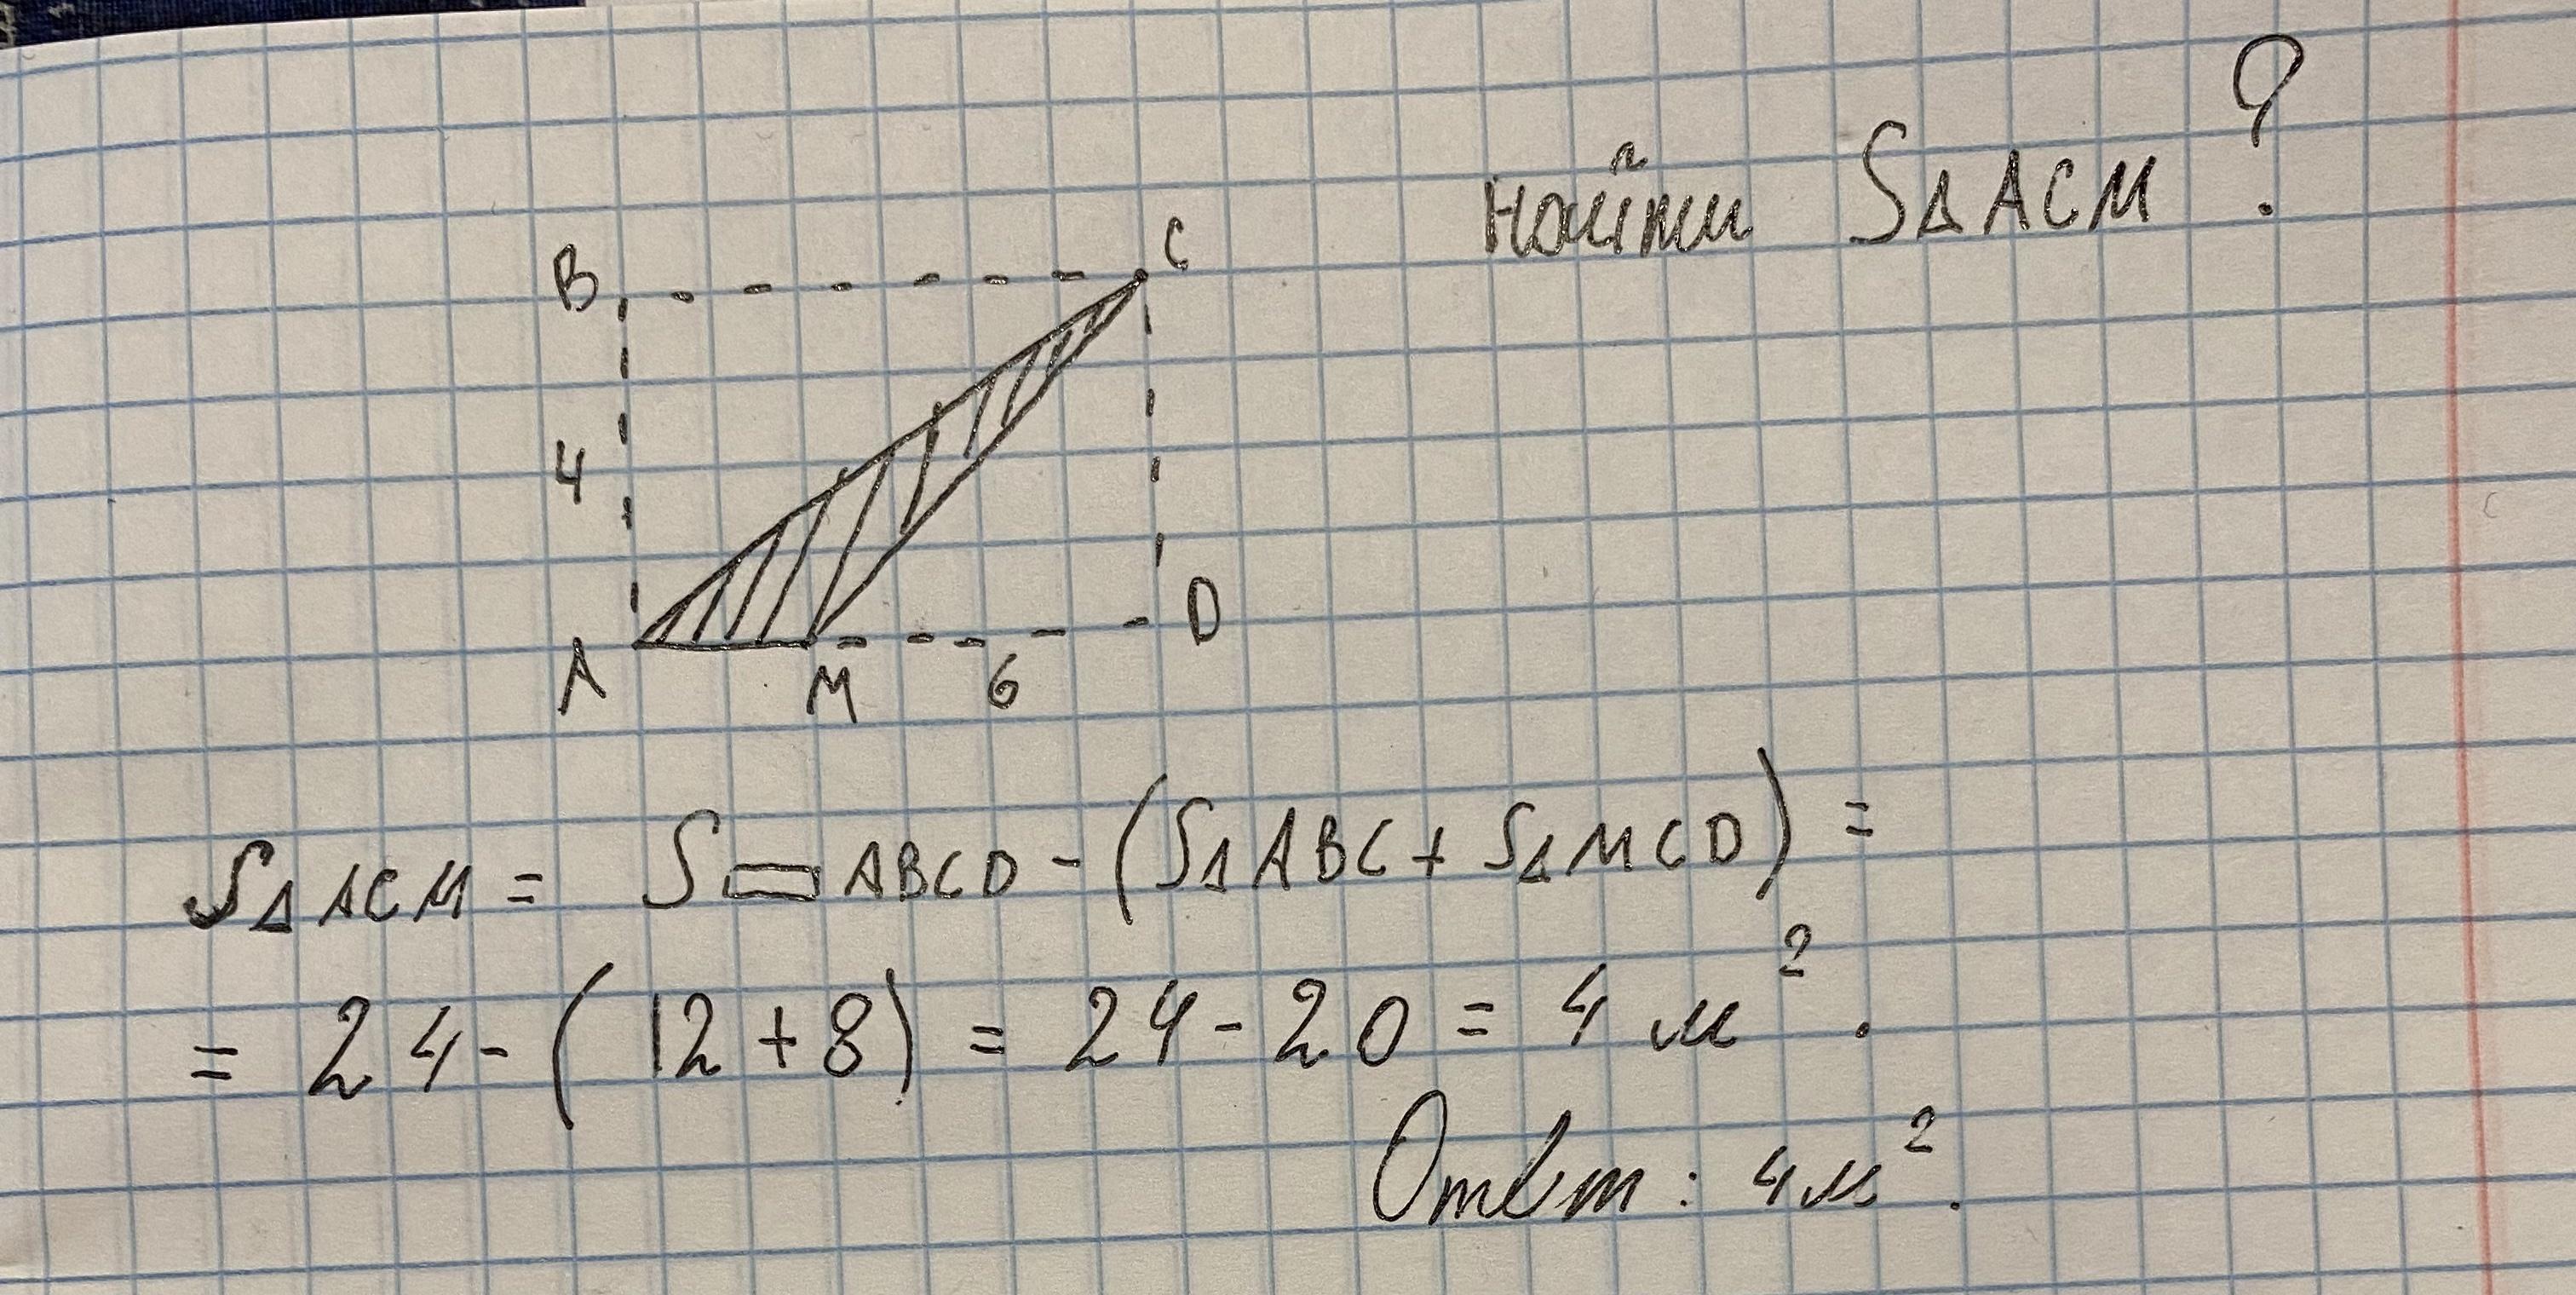 найти S△ACM ?
B C
4
A M 6 D
S△ACM = S▭ABCD - (S△ABC + S△MCD) =
= 24 - (12 + 8) = 24 - 20 = 4 м².
Ответ: 4 м².